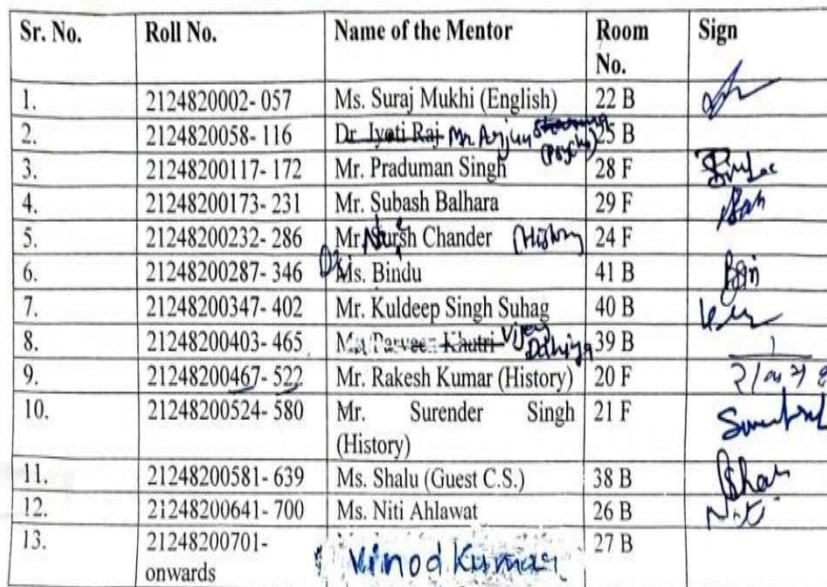 Sr. No. Roll No. Name of the Mentor Room No. Sign
1. 2124820002- 057 Ms. Suraj Mukhi (English) 22 B
2. 2124820058- 116 Dr. Jyoti Raj Mr Arjun (Psycho) 25 B
3. 21248200117- 172 Mr. Praduman Singh 28 F
4. 21248200173- 231 Mr. Subash Balhara 29 F
5. 21248200232- 286 Mr. Chander (History) 24 F
6. 21248200287- 346 Dr. Ms. Bindu 41 B
7. 21248200347- 402 Mr. Kuldeep Singh Suhag 40 B
8. 21248200403- 465 Parveen Khatri Vijay 39 B
9. 21248200467- 522 Mr. Rakesh Kumar (History) 20 F
10. 21248200524- 580 Mr. Surender Singh 21 F
(History)
11. 21248200581- 639 Ms. Shalu (Guest C.S.) 38 B
12. 21248200641- 700 Ms. Niti Ahlawat 26 B Niti
13. 21248200701- Vinod Kumar 27 B
onwards